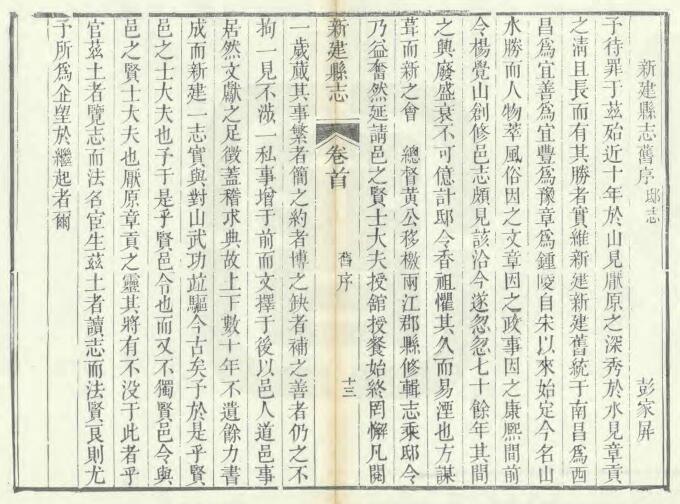 新建縣志舊序 邸志
彭家屏
予待罪于茲殆近十年於山見厭原之深秀於水見章貢
之淸且長而有其勝者實維新建新建舊統于南昌爲西
昌爲宜善爲宜豐爲豫章爲鍾陵自宋以來始定今名山
水勝而人物萃風俗因之文章因之政事因之康熙間前
令楊覺山創修邑志頗見該洽今遂忽忽七十餘年其間
之興廢盛衰不可億計邸令香祖懼其久而易湮也方謀
葺而新之會　總督黃公移檄兩江郡縣修輯志乘邸令
乃益奮然延請邑之賢士大夫授舘授餐始終罔懈凡閱
新建縣志
卷首
舊序
十三
一歲蕆其事繁者簡之約者博之缺者補之善者仍之不
拘一見不涉一私事增于前而文擇于後以邑人道邑事
居然文獻之足徵蓋稽求典故上下數十年不遺餘力書
成而新建一志實與對山武功並驅今古矣予於是乎賢
邑之士大夫也予于是乎賢邑令也而又不獨賢邑令與
邑之賢士大夫也厭原章貢之靈其將有不没于此者乎
官茲土者覽志而法名宦生茲土者讀志而法賢良則尤
予所爲企望於繼起者爾